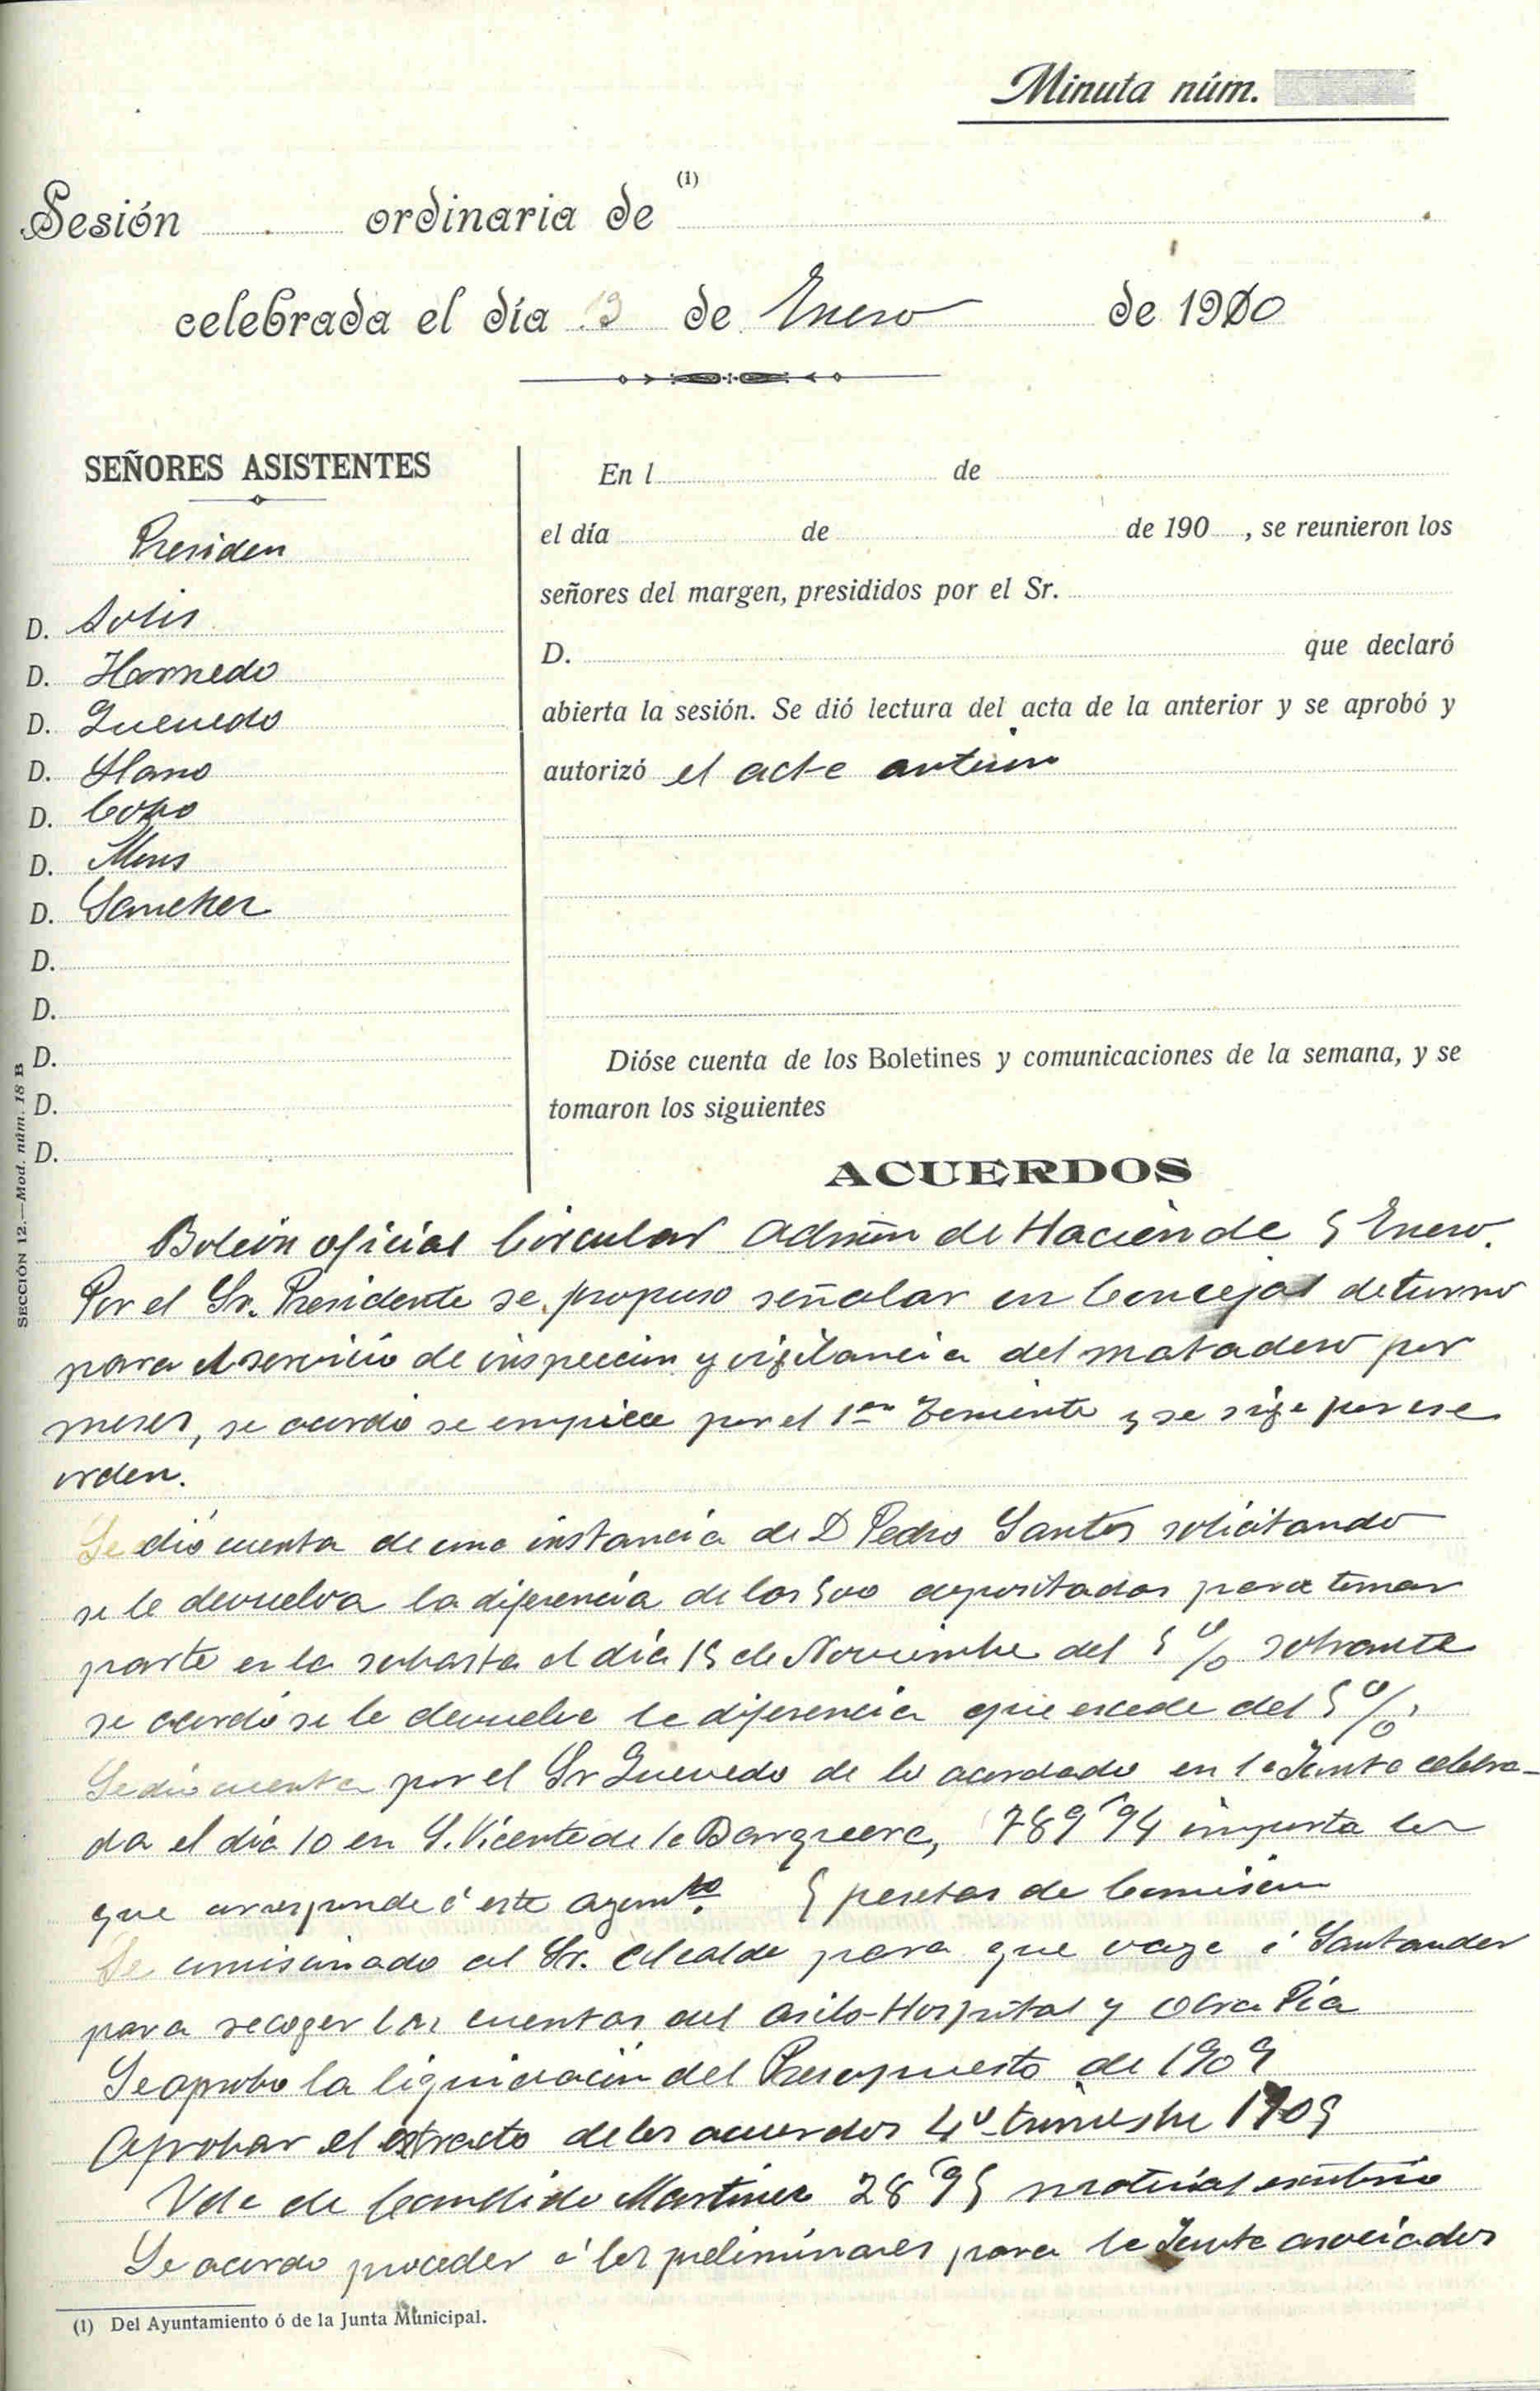 Minuta núm.
Sesión ordinaria de (1)
celebrada el día 13 de Enero de 1910
SEÑORES ASISTENTES
Presiden
D. Solis
D. Hornedo
D. Quevedo
D. Llano
D. Cobo
D.
D. Sanchez
D.
D.
D.
D.
D.
En l de
el día de de 190 , se reunieron los
señores del margen, presididos por el Sr.
D. que declaró
abierta la sesión. Se dió lectura del acta de la anterior y se aprobó y
autorizó el acta anterior
Dióse cuenta de los Boletines y comunicaciones de la semana, y se
tomaron los siguientes
ACUERDOS
Boletin oficial Circular Admon de Hacienda 5 Enero.
Por el Sr. Presidente se propuso señalar un Concejal de turno
para el servicio de inspeccion y vigilancia del matadero por
meses, se acordó se empiece por el 1er Teniente y se siga por ese
orden.
Se dió cuenta de una instancia de D Pedro Santos solicitando
se le devuelva la diferencia de las 500 depositadas para tomar
parte en la subasta el día 15 de Noviembre del 5 % sobrante
se acordó se le devuelva la diferencia que escede del 5 %.
Se dió cuenta por el Sr Quevedo de lo acordado en la Junta celebra-
da el día 10 en S. Vicente de la Barquera, 789'94 importa lo
que corresponde á este Ayunto. 5 pesetas de Comision
Se comisionado al Sr. Alcalde para que vaya á Santander
para recoger las cuentas del Asilo-Hospital y obra Pía
Se aprobo la liquidación del Presupuesto de 1909
Aprobar el extracto de los acuerdos 4º trimestre 1909
de Candido Martinez 28'95 material escritorio
Se acordo proceder á los preliminares para la Junta asociados
(1) Del Ayuntamiento ó de la Junta Municipal.
SECCIÓN 12.—Mod. núm. 18 B